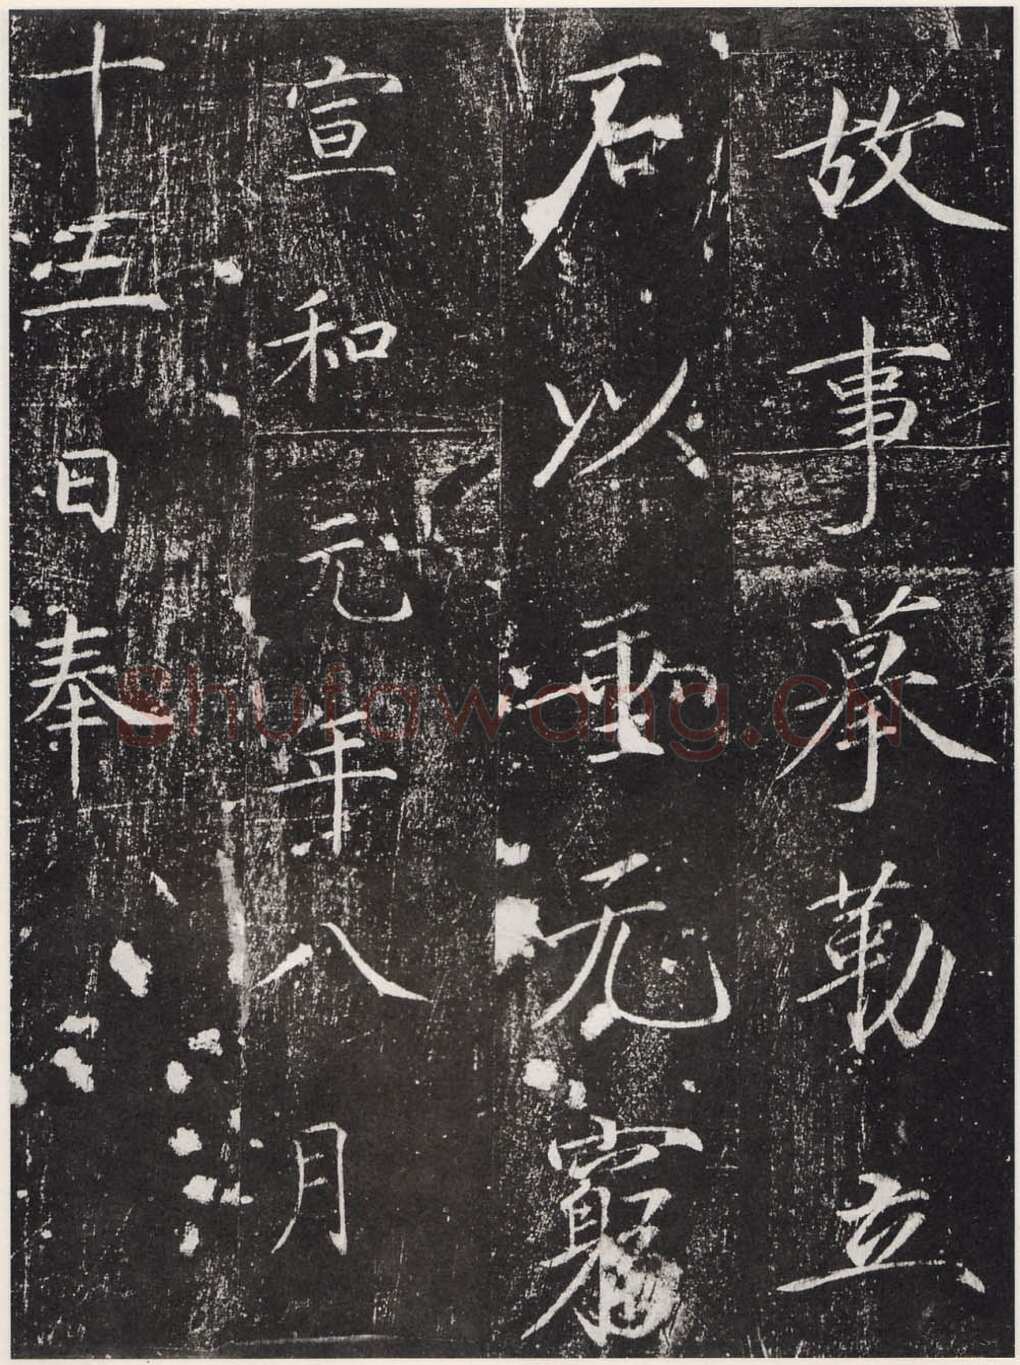 故事摹勒立
石以垂无窮
宣和元年八月
十五日奉
Shufawang.CN